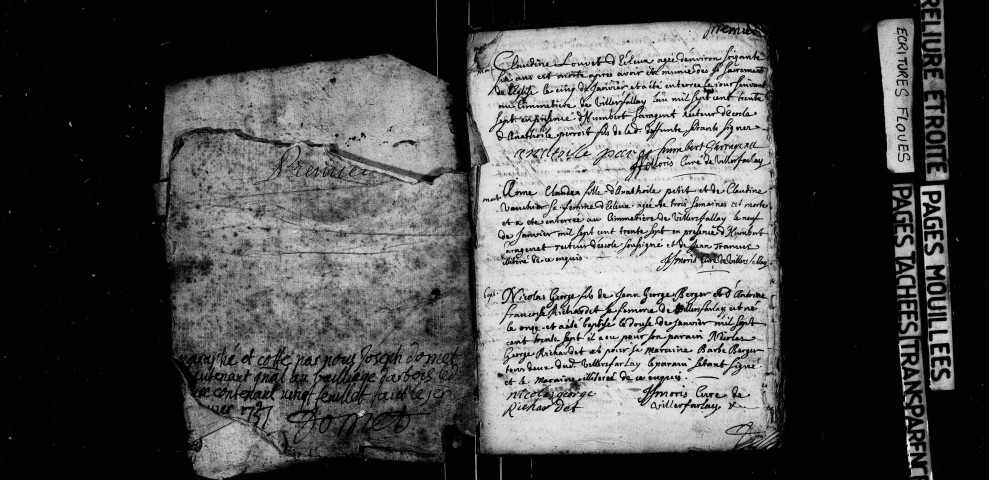 Premier
paraphé et cotté par nous Joseph Domet
Lieutenant gñal au bailliage
contenant vingt feuillet fait ce 1er
1737
Domet
premier
mort
Claudine Louvet d'Ecleux agée d'environ soixante
six ans est morte apres avoir été munie des Sts Sacrement
de l'Eglise le cinq de janvier et a été enterrée le jour suivant
au cimmetiere de Villerfarlay l'an mil sept cent trente
sept en présence d'Humbert Saragenet recteur d'école
d'Anathoile perrot fils de lad. defunte
humbert Sarragenet
JJ Moris Curé de Villerfarlay
mort
Anne Claudea fille d'Anathoile petit et de Claudine
Vauchier sa femme d'Ecleux agée de trois semaines est morte
et a été enterrée au Cimmetiere de Villersfarlay le neuf
de janvier mil sept cent trente sept en présence d'Humbert
aragenet recteur d'école soussigné et de Jean Francois
illiteré de ce enquis
JJ Moris Curé de Villersfarlay
Nicolas George fils de Jean George Berger et d'Antoine
Francoise Richardet sa femme de Villerfarlay est né
le onze et a été baptisé le douse de janvier mil sept
cent trente sept il a eu pour son parain Nicolas
George Richardet et pour sa maraine Barbe Berger
tous deux dud. Villerfarlay le parain s'etant signé
et la Maraine illiterée de ce enquise
nicolas george
Richardet
JJ Moris Curé de
Villerfarlay
ECRITURES FLOUES
RELIURE ETROITE
PAGES MOUILLEES
PAGES TACHEES
TRANSPARENC